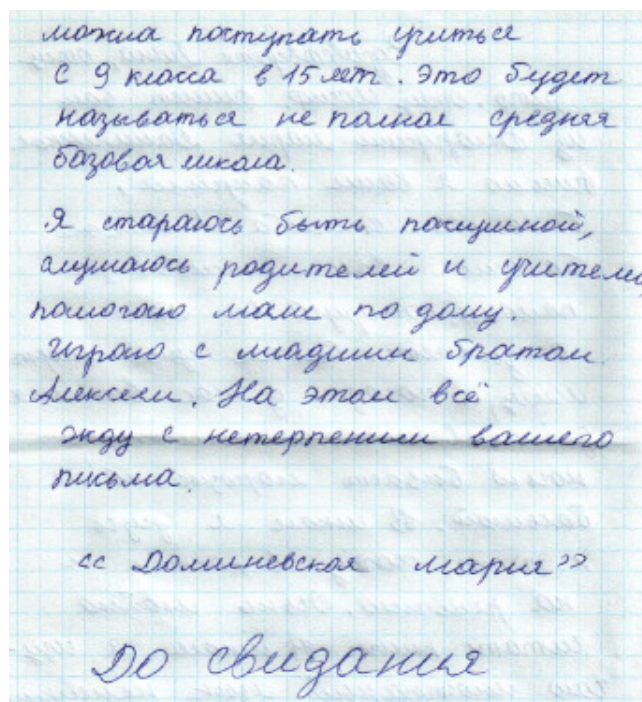 можна поступать учиться
С 9 класса в 15 лет. Это будет
называться не полная средняя
базовая школа.
Я стараюсь быть послушной,
слушаюсь родителей и учителей,
помогаю маме по дому.
играю с младшим братом
Алексеем. На этом всё
жду с нетерпением вашего
письма.
"Доминевская Мария"
До свидания